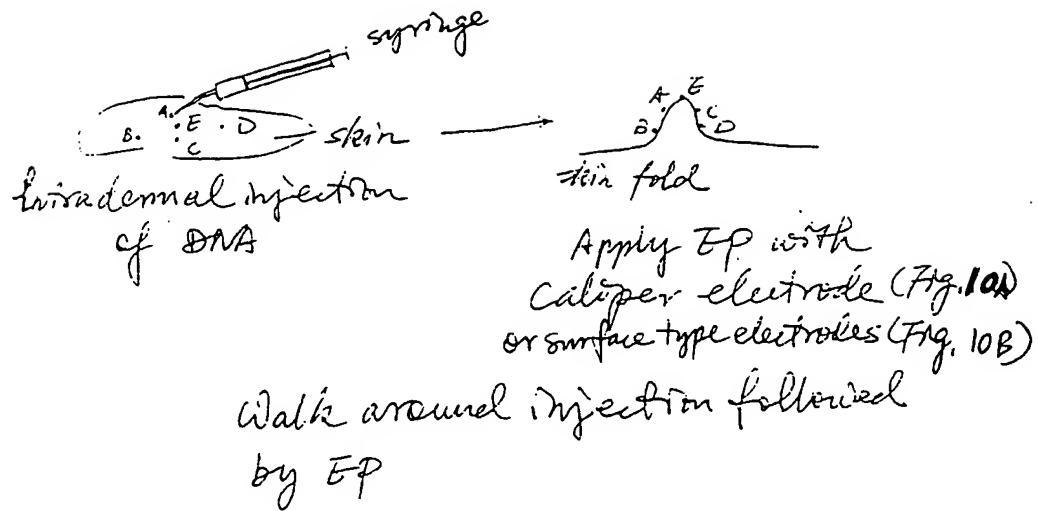 syringe
A. E . D
B. C
skin
Intradermal injection
of DNA
A E
B C D
skin fold
Apply EP with
Caliper electrode (Fig. 10A)
or surface type electrodes (Fig. 10B)
Walk around injection followed
by EP